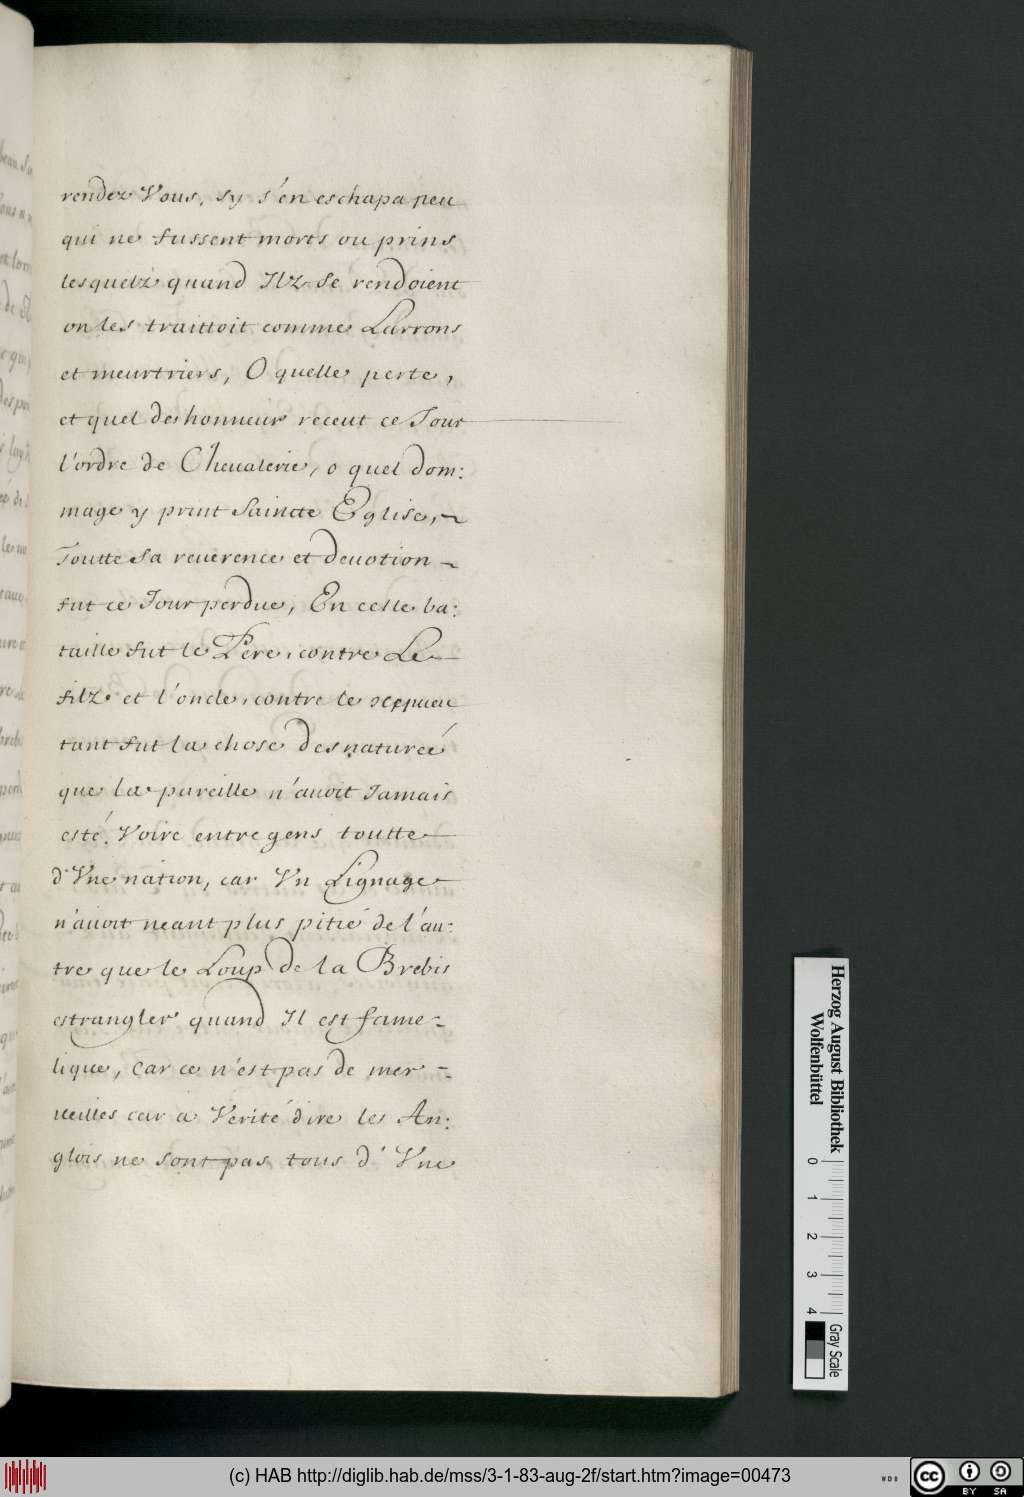 rendez Vous, sy s'en eschapa peu
qui ne fussent morts ou prins
lesquelz quand Ilz se rendoient
on les traittoit comme Larrons
et meurtriers, O quelle perte,
et quel deshonneur receut ce Jour
l'ordre de Cheualerie, o quel dom:
mage y print Saincte Eglise, ~
Toutte sa reuerence et deuotion ~
fut ce Jour perdue, En celle ba:
taille fut le Pere, contre Le
filz. et l'oncle, contre le nepueu
tant fut la chose desnatureé
que la pareille n'auoit Jamais
esté. Voire entre gens toutte
d'Vne nation, car Vn Lignage
n'auoit neant plus pitié de l'au:
tre que le Loup de la Brebis
estrangler quand Il est fame:
lique, Car ce n'est pas de mer:
ueilles car a Verité dire les An:
glois ne sont pas tous d'Vne
Herzog August Bibliothek
Wolfenbüttel
0 1 2 3 4
Gray Scale
(c) HAB http://diglib.hab.de/mss/3-1-83-aug-2f/start.htm?image=00473
WDB
cc BY SA